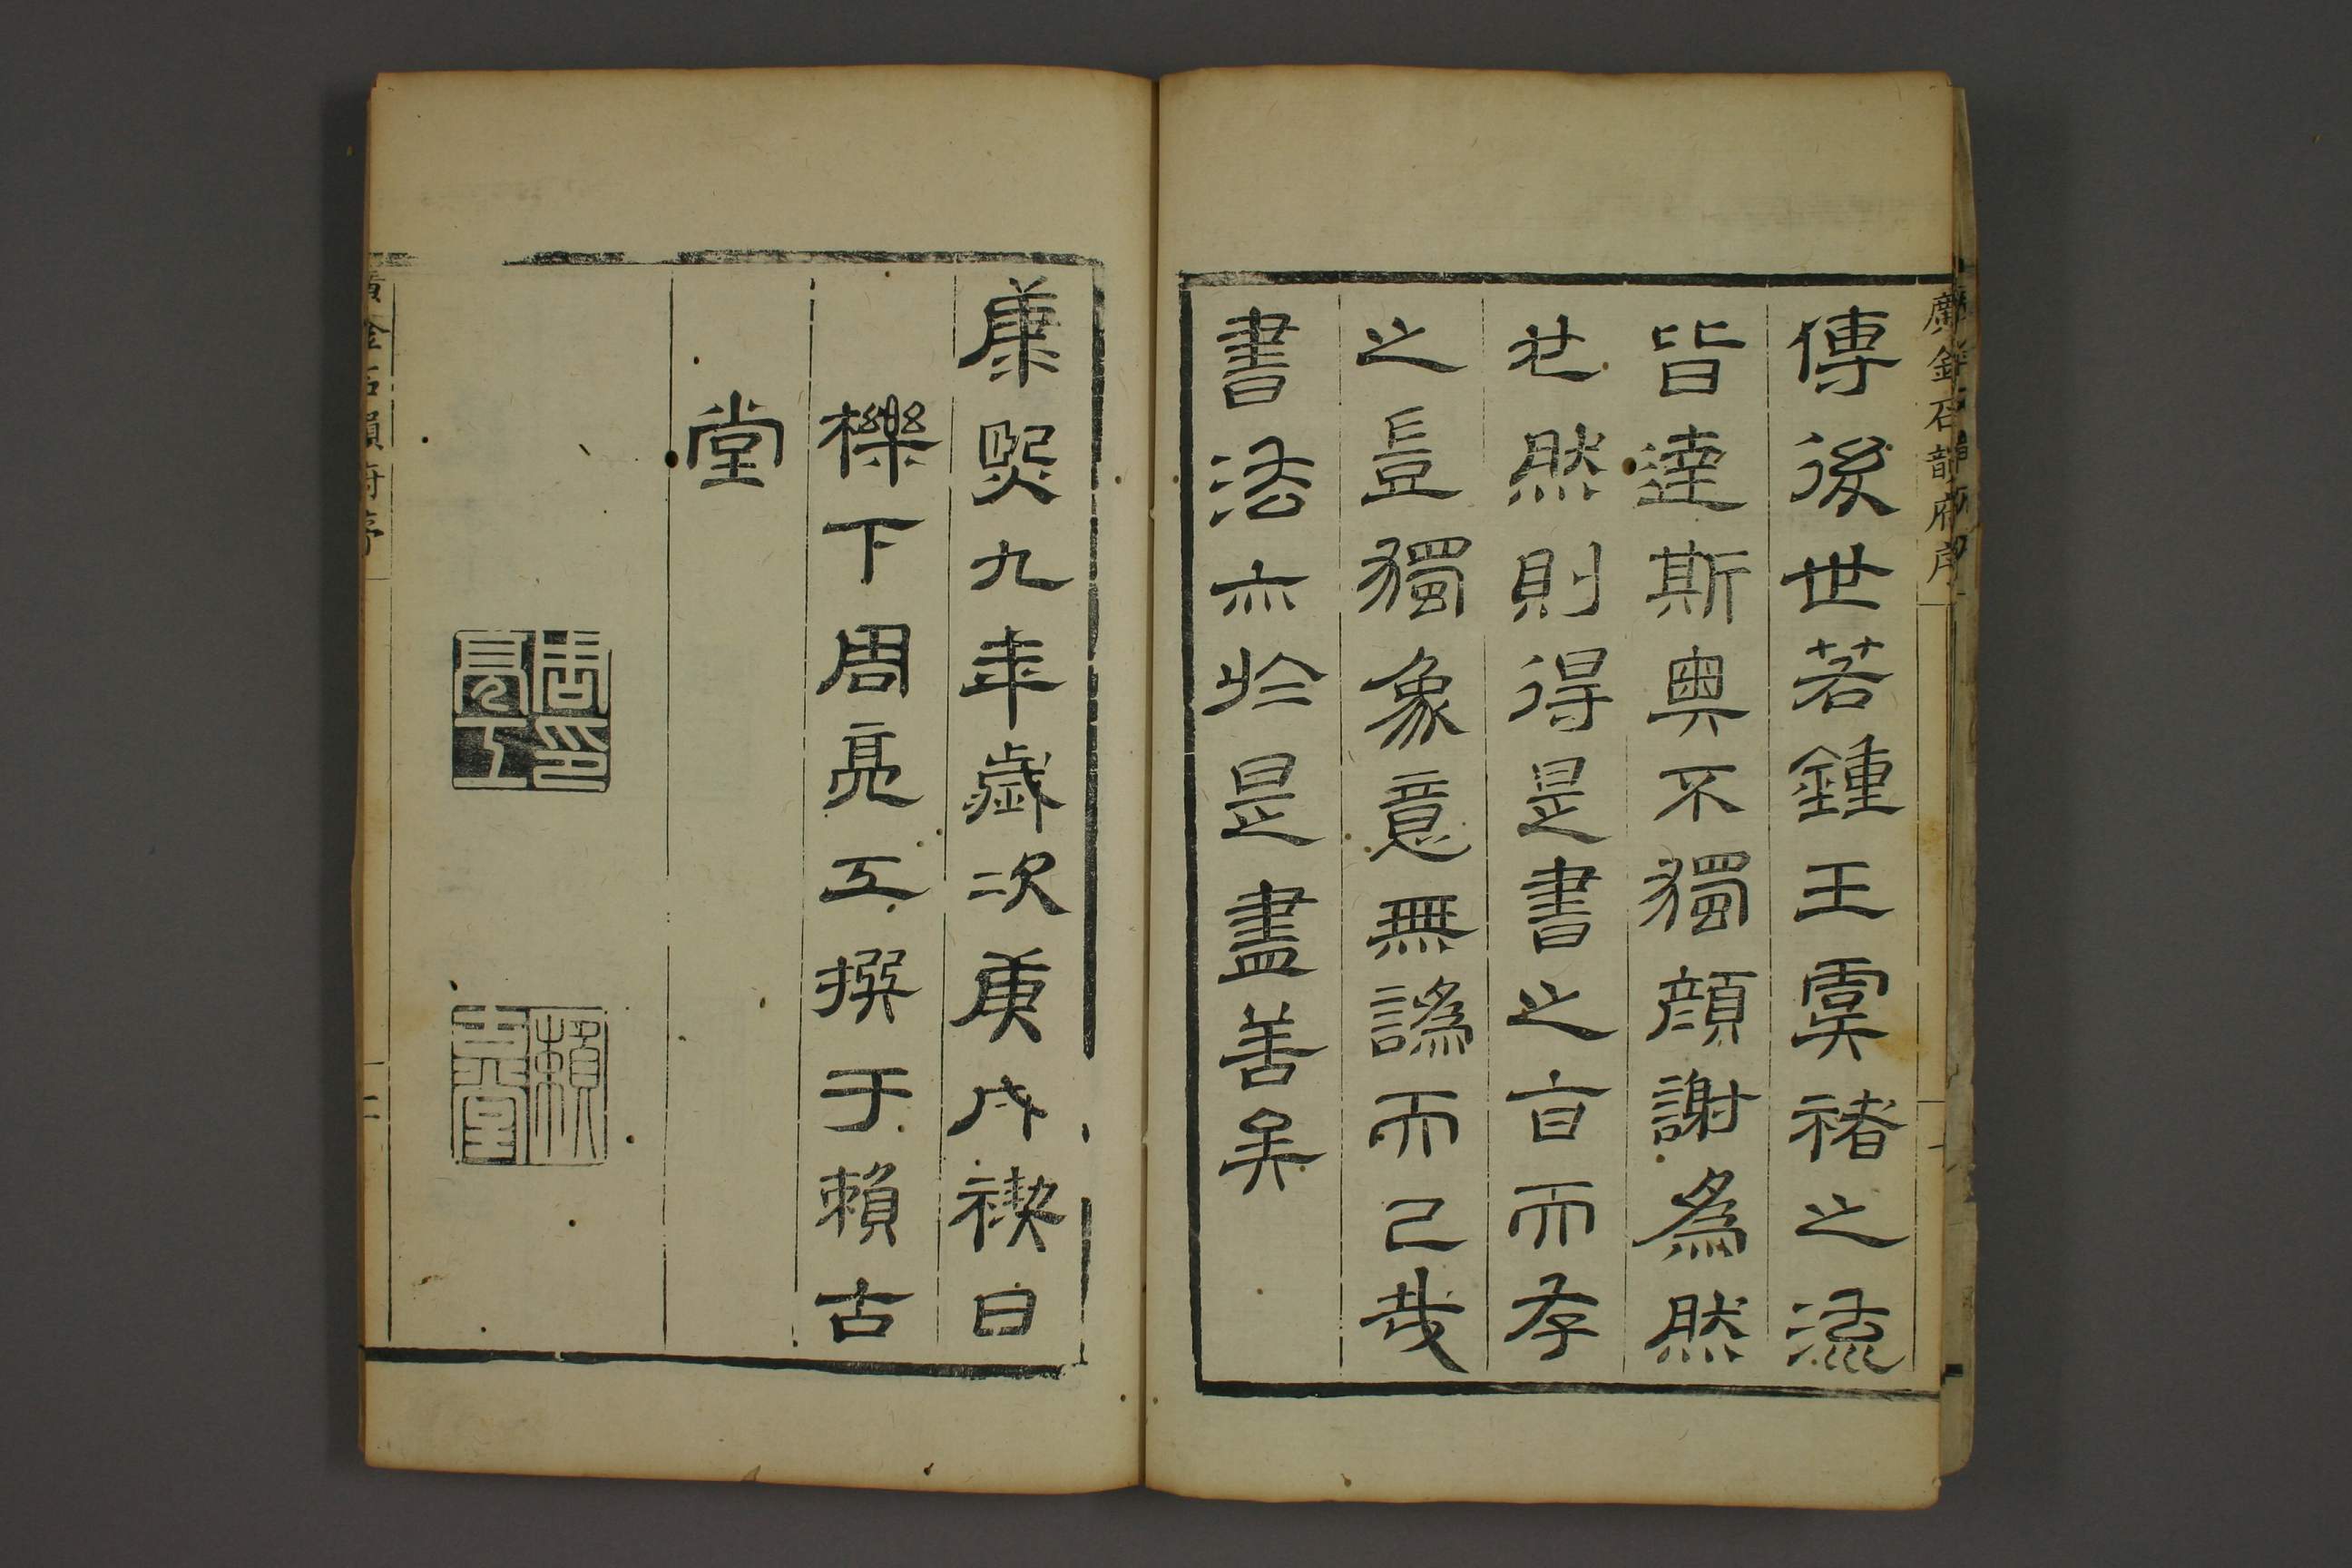 廣金石韻府序
傳後世若鍾王虞褚之流
皆達斯奧不獨顏謝為然
也然則得是書之旨而存
之豈獨象意無譌而已哉
書法亦於是盡善矣
康熙九年歲次庚戌禊日
櫟下周亮工撰于賴古
堂
周亮工印
賴古堂
廣金石韻府序
二